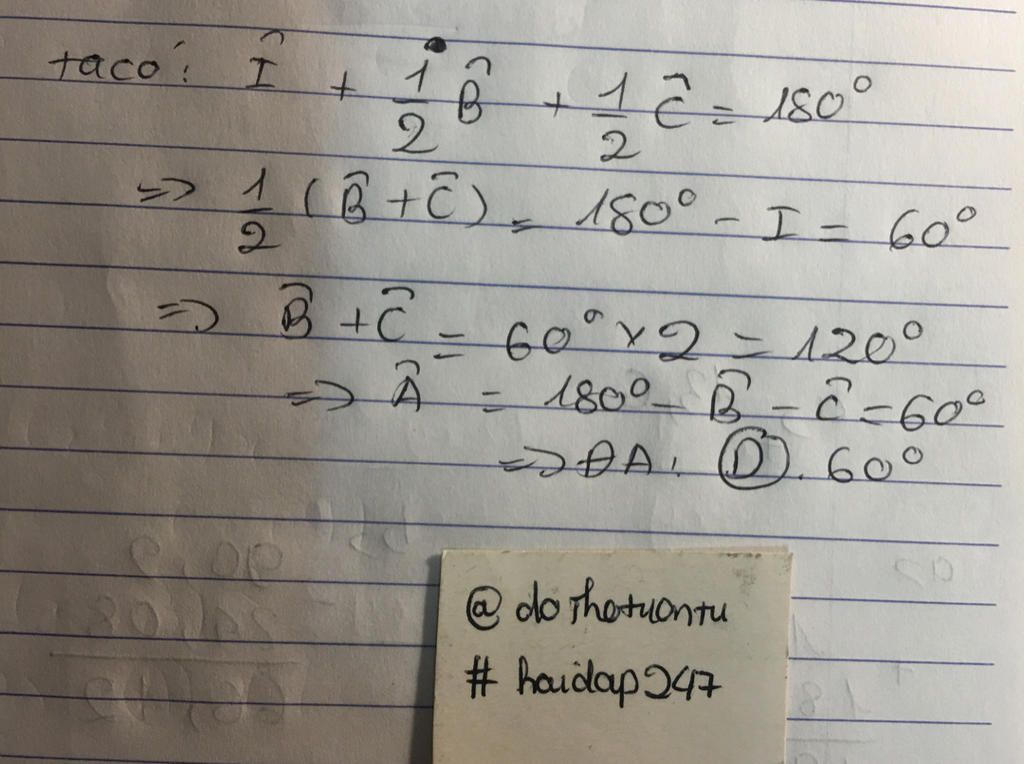 taco: Î + 1/2 B̂ + 1/2 Ĉ = 180°
=> 1/2 (B̂ + Ĉ) = 180° - I = 60°
=> B̂ + Ĉ = 60° x 2 = 120°
=> Â = 180° - B̂ - Ĉ = 60°
=> ĐA: D. 60°
@ dothotuantu
# hoidap247